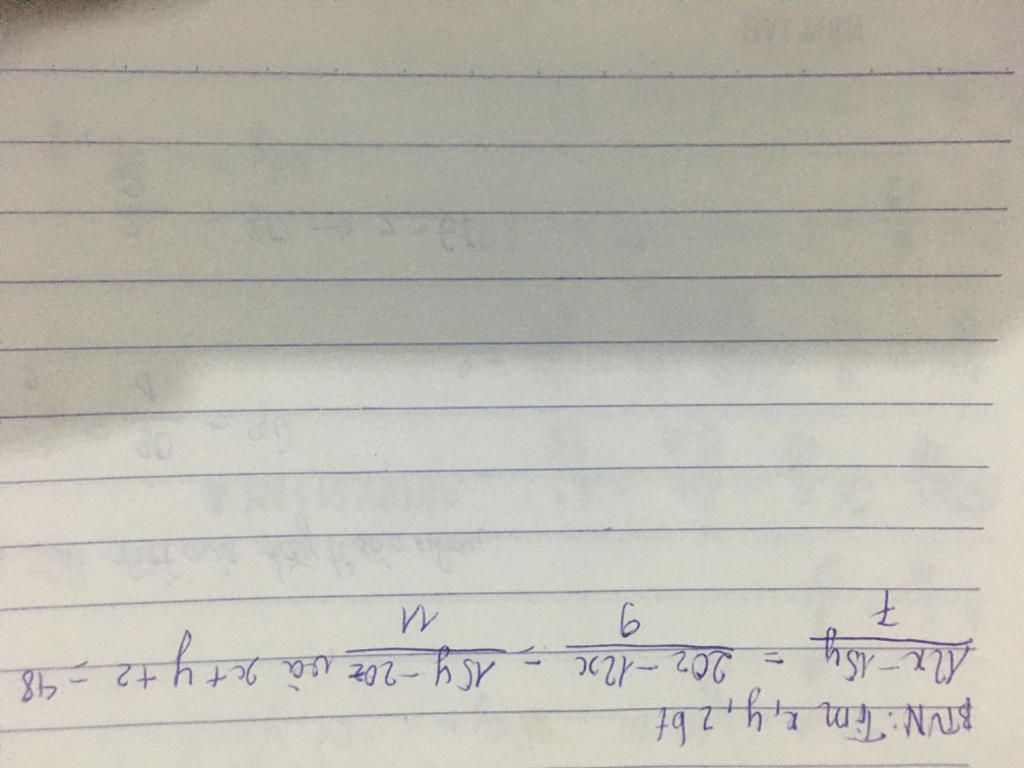 BTVN: Tìm x, y, z bt
12x - 15y / 7 = 20z - 12x / 9 = 15y - 20z / 11 và x + y + z = 48